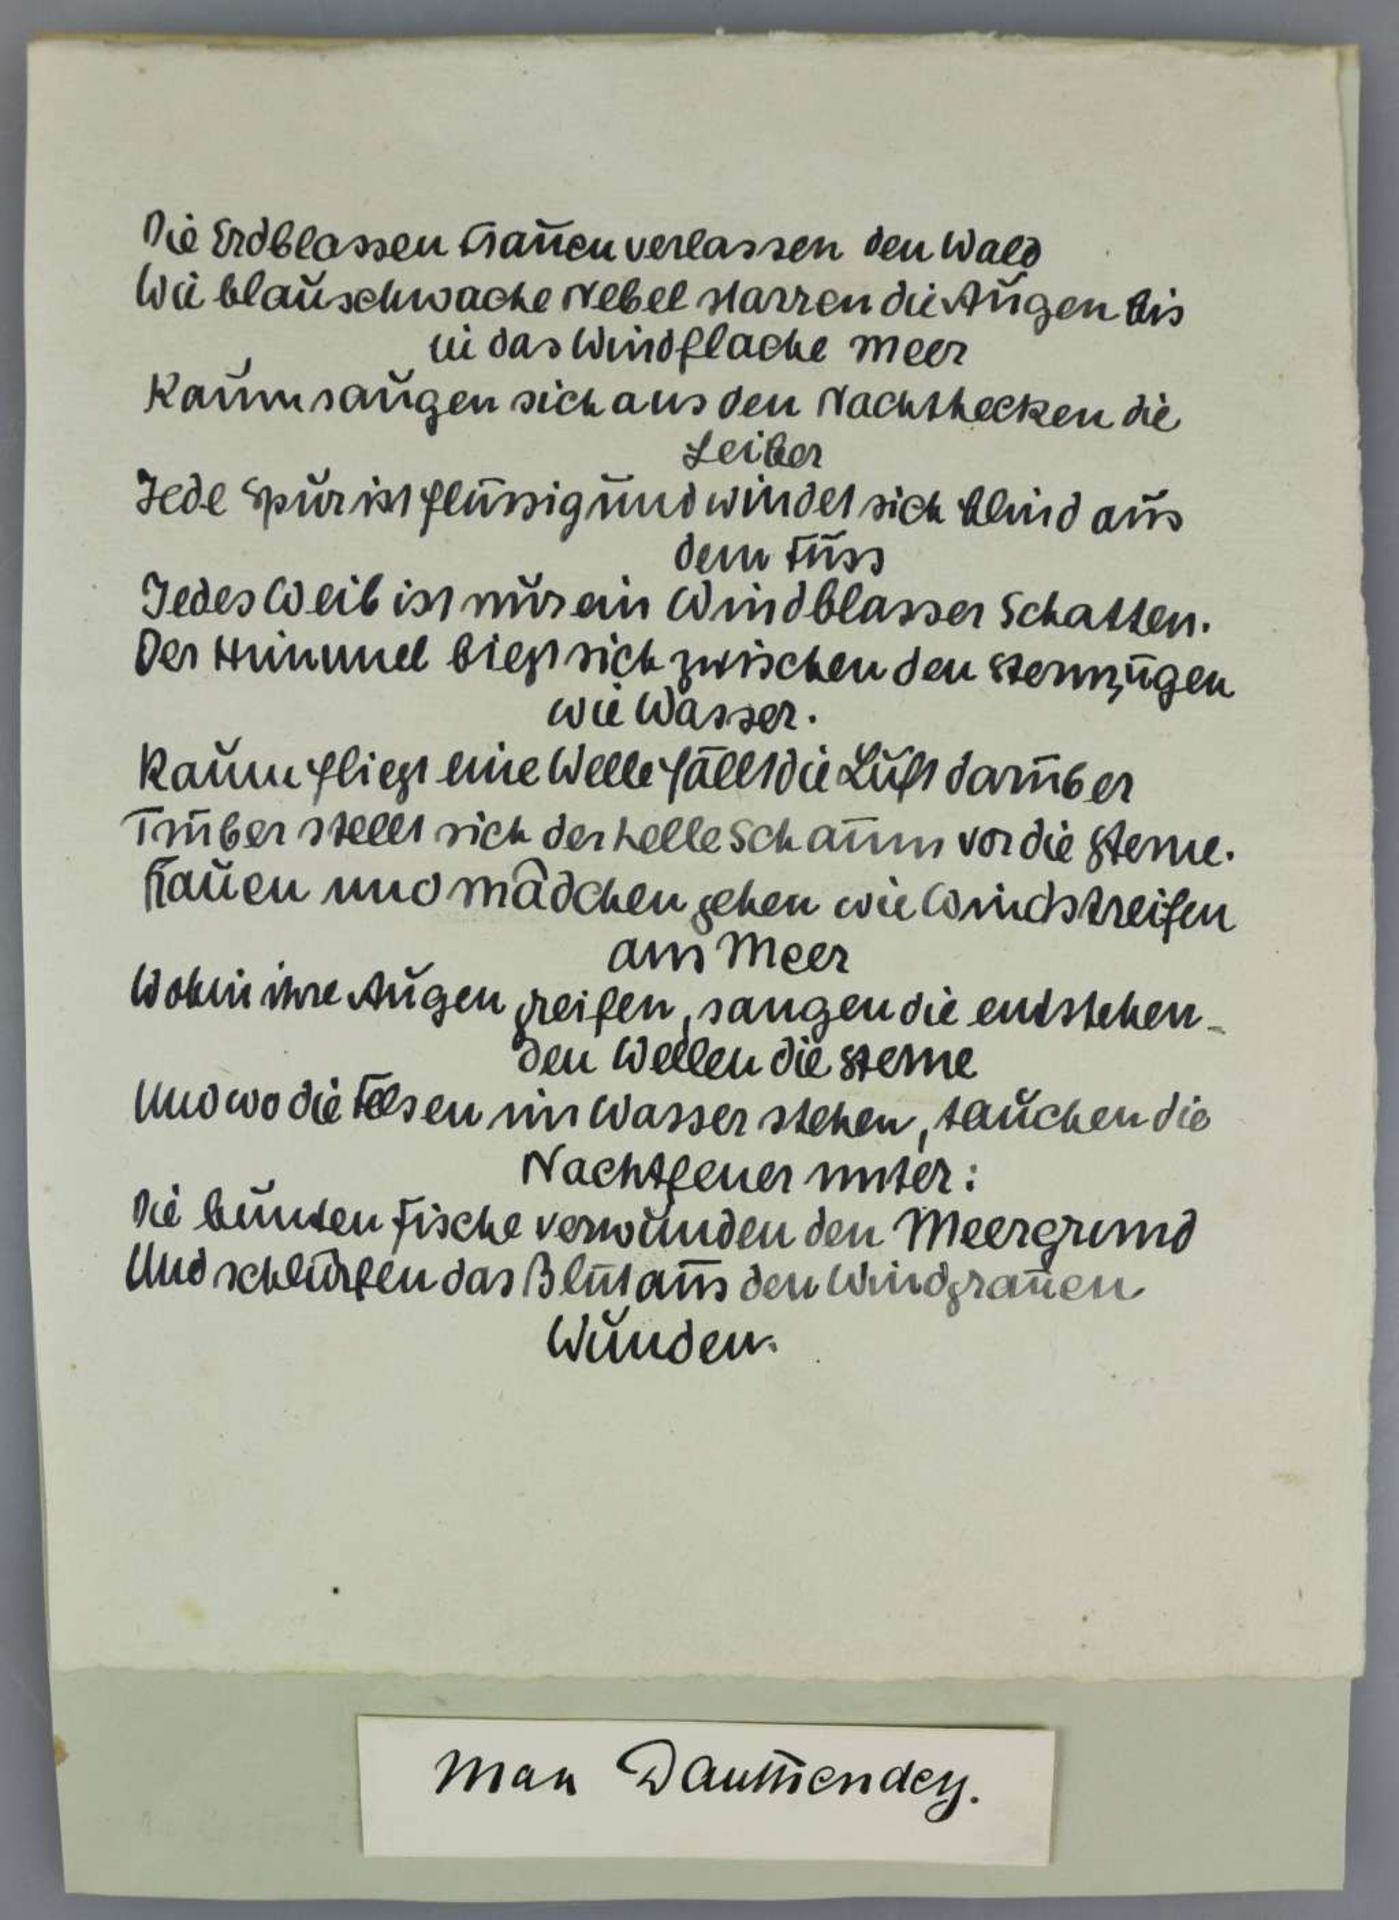 Die Erdblassen Frauen verlassen den Wald
Wie blauschwache Nebel starren die Augen bis
in das Windflache Meer
Kaum saugen sich aus den Nachthecken die
Leiber
Jede Spur ist flüssig und windet sich blind aus
dem Fuss
Jedes Weib ist nur ein Windblasser Schatten.
Der Himmel biegt sich zwischen den Sternzügen
wie Wasser.
Kaum fliegt eine Welle fällt die Luft darüber
Trüber stellt sich der helle Schaum vor die Sterne.
Frauen und Mädchen gehen wie Windstreifen
am Meer
Wohin ihre Augen greifen, saugen die entstehen-
den Wellen die Sterne
Und wo die Felsen im Wasser stehen, tauchen die
Nachtfeuer unter:
Die bunten Fische verwunden den Meergrund
Und schlürfen das Blut aus den Windgrauen
Wunden.
Max Dauthendey.